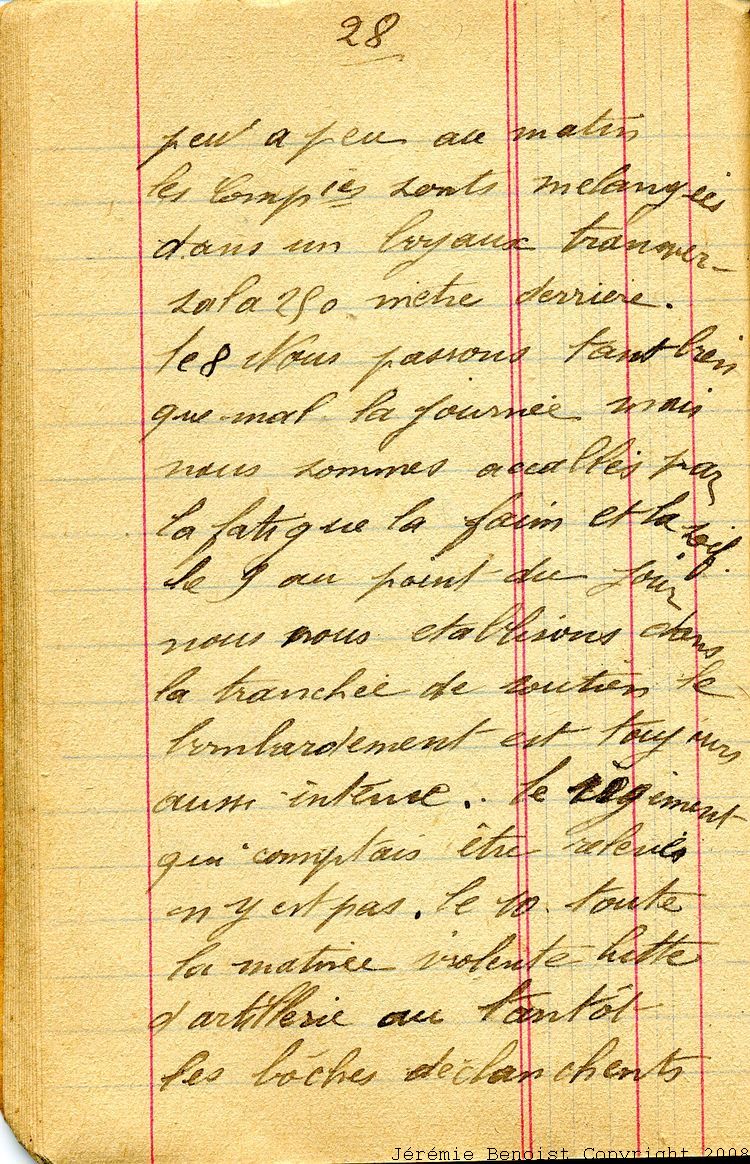 28
peu a peu au matin
les Compies sonts melangées
dans un boyaux tranver-
sala 250 metre derriere.
le 8 Nous passons tant bien
que mal la journée mais
nous sommes accablés par
la fatigue la faim et la soif.
le 9 au point du jour
nous nous etablisons dans
la tranchée de soutien le
bombardement est toujours
aussi intense.. le régiment
qui comptais être relevés
n y est pas. le 10. toute
la matinée violente lutte
d artillerie au tantôt
les bôches déclanchents
Jérémie Benoist Copyright 2008